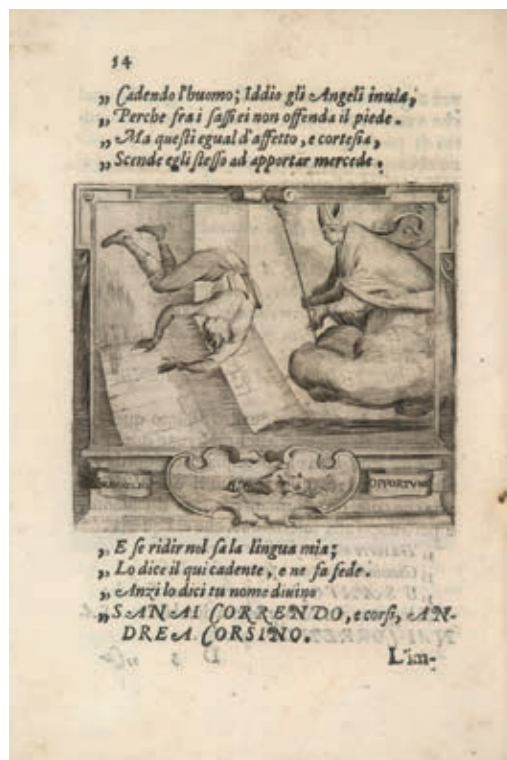 54
„ Cadendo l'huomo; Iddio gli Angeli inuia,
„ Perche fra i sassi ei non offenda il piede.
„ Ma questi egual d'affetto, e cortesia,
„ Scende egli stesso ad apportar mercede.
OPPORTUNO
„ E se ridir nol sa la lingua mia;
„ Lo dice il qui cadente, e ne fa fede.
„ Anzi lo dici tu nome diuino
„ SANAI CORRENDO, e corsi, AN-
DREA CORSINO.
Lim-